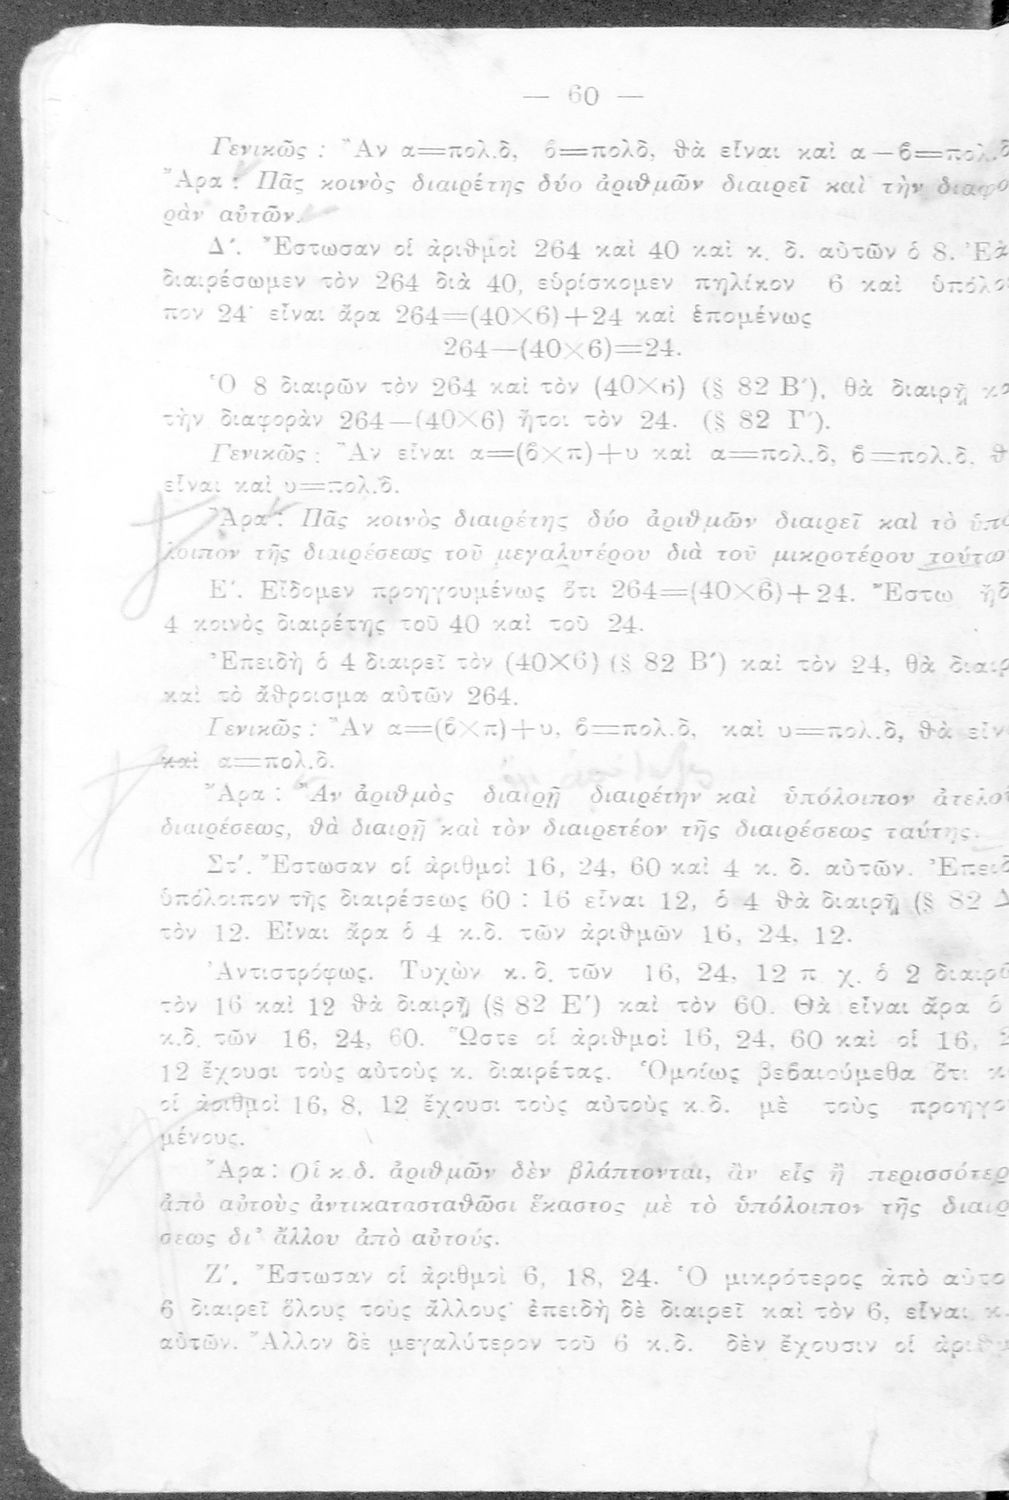 — 60 —
Γενικῶς : Ἂν α=πολ.δ, ϐ=πολδ, θὰ εἶναι καὶ α—ϐ=πολ.δ
Ἄρα : Πᾶς κοινὸς διαιρέτης δύο ἀριθμῶν διαιρεῖ καὶ τὴν διαφο
ρὰν αὐτῶν.
Δ´. Ἔστωσαν οἱ ἀριθμοὶ 264 καὶ 40 καὶ κ. δ. αὐτῶν ὁ 8. Ἐὰ
διαιρέσωμεν τὸν 264 διὰ 40, εὑρίσκομεν πηλίκον 6 καὶ ὑπόλο
πον 24· εἶναι ἄρα 264=(40×6)+24 καὶ ἑπομένως
264—(40×6)=24.
Ὁ 8 διαιρῶν τὸν 264 καὶ τὸν (40×6) (§ 82 Β´), θὰ διαιρῇ κα
τὴν διαφορὰν 264—(40×6) ἤτοι τὸν 24. (§ 82 Γ´).
Γενικῶς : Ἂν εἶναι α=(ϐ×π)+υ καὶ α=πολ.δ, ϐ=πολ.δ. θ
εἶναι καὶ υ=πολ.δ.
Ἄρα : Πᾶς κοινὸς διαιρέτης δύο ἀριθμῶν διαιρεῖ καὶ τὸ ὑπό
λοιπον τῆς διαιρέσεως τοῦ μεγαλυτέρου διὰ τοῦ μικροτέρου τούτω
Ε´. Εἴδομεν προηγουμένως ὅτι 264=(40×6)+24. Ἔστω ἤδ
4 κοινὸς διαιρέτης τοῦ 40 καὶ τοῦ 24.
Ἐπειδὴ ὁ 4 διαιρεῖ τὸν (40×6) (§ 82 Β´) καὶ τὸν 24, θὰ διαιρ
καὶ τὸ ἄθροισμα αὐτῶν 264.
Γενικῶς : Ἂν α=(ϐ×π)+υ, ϐ=πολ.δ, καὶ υ=πολ.δ, θὰ εἶν
καὶ α=πολ.δ.
Ἄρα : Ἂν ἀριθμὸς διαιρῇ διαιρέτην καὶ ὑπόλοιπον ἀτελο
διαιρέσεως, θὰ διαιρῇ καὶ τὸν διαιρετέον τῆς διαιρέσεως ταύτης.
Στ´. Ἔστωσαν οἱ ἀριθμοὶ 16, 24, 60 καὶ 4 κ. δ. αὐτῶν. Ἐπειδ
ὑπόλοιπον τῆς διαιρέσεως 60 : 16 εἶναι 12, ὁ 4 θὰ διαιρῇ (§ 82 Δ
τὸν 12. Εἶναι ἄρα ὁ 4 κ.δ. τῶν ἀριθμῶν 16, 24, 12.
Ἀντιστρόφως. Τυχὼν κ.δ. τῶν 16, 24, 12 π χ. ὁ 2 διαιρῶ
τὸν 16 καὶ 12 θὰ διαιρῇ (§ 82 Ε´) καὶ τὸν 60. Θὰ εἶναι ἄρα ὁ
κ.δ. τῶν 16, 24, 60. Ὥστε οἱ ἀριθμοὶ 16, 24, 60 καὶ οἱ 16, 2
12 ἔχουσι τοὺς αὐτοὺς κ. διαιρέτας. Ὁμοίως βεϐαιούμεθα ὅτι κ
οἱ ἀριθμοὶ 16, 8, 12 ἔχουσι τοὺς αὐτοὺς κ.δ. μὲ τοὺς προηγο
μένους.
Ἄρα : Οἱ κ δ. ἀριθμῶν δὲν βλάπτονται, ἂν εἷς ἢ περισσότερ
ἀπὸ αὐτοὺς ἀντικατασταθῶσι ἕκαστος μὲ τὸ ὑπόλοιπον τῆς διαιρ
σεως δι’ ἄλλου ἀπὸ αὐτούς.
Ζ´. Ἔστωσαν οἱ ἀριθμοὶ 6, 18, 24. Ὁ μικρότερος ἀπὸ αὐτο
6 διαιρεῖ ὅλους τοὺς ἄλλους· ἐπειδὴ δὲ διαιρεῖ καὶ τὸν 6, εἶναι κ.
αὐτῶν. Ἄλλον δὲ μεγαλύτερον τοῦ 6 κ.δ. δὲν ἔχουσιν οἱ ἀριθμ